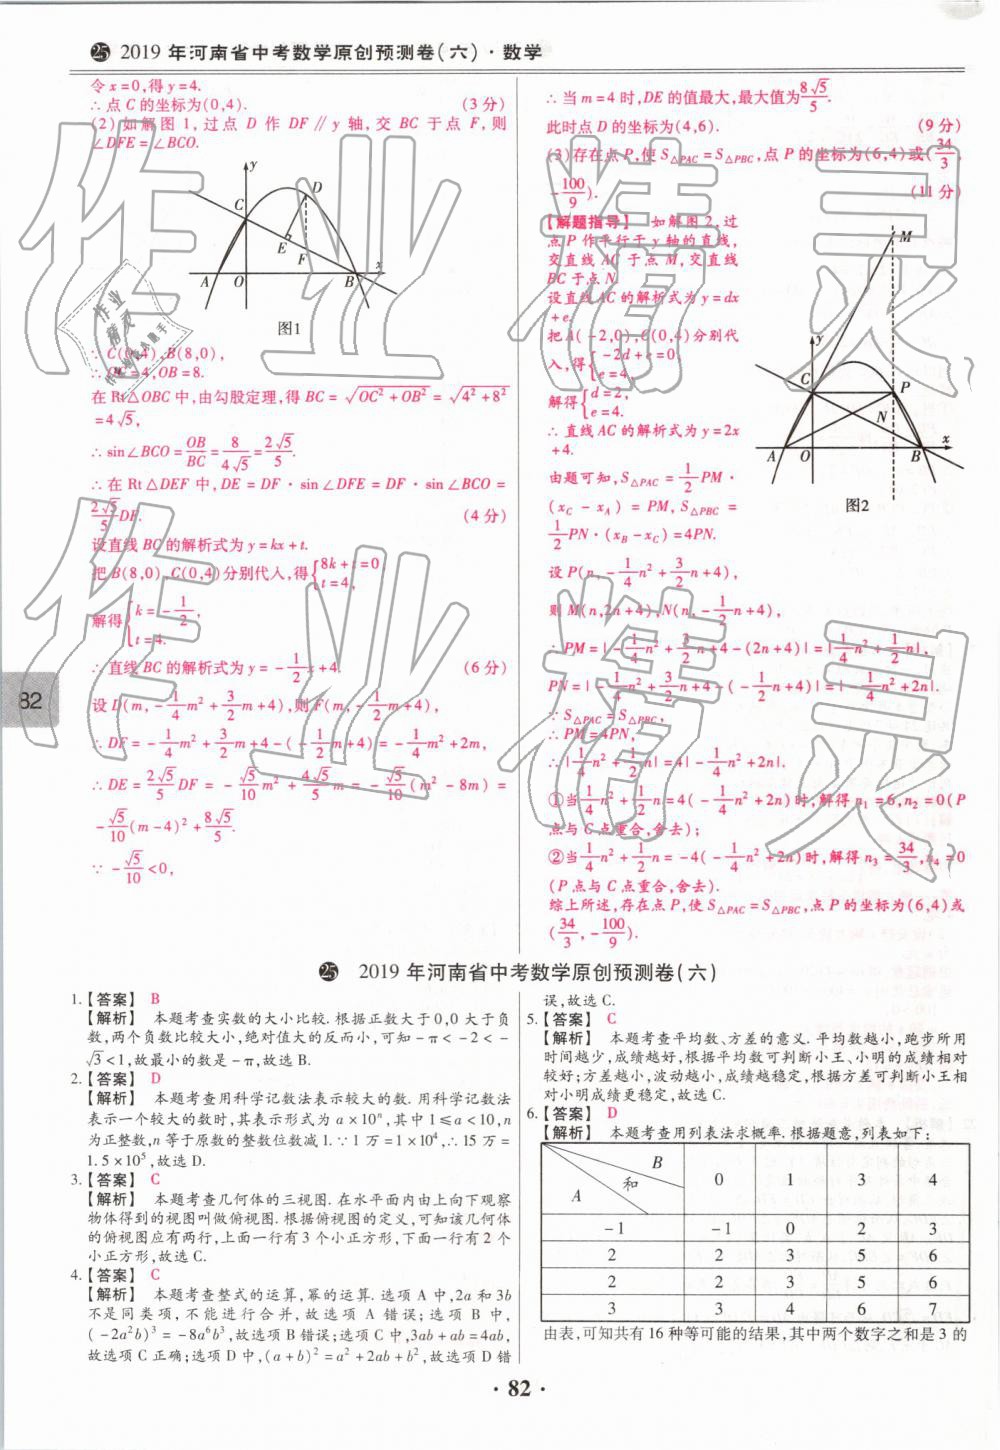 25 2019年河南省中考数学原创预测卷(六)·数学
令x=0,得y=4.
∴点C的坐标为(0,4). (3分)
(2)如解图1,过点D作DF∥y轴,交BC于点F,则
∠DFE=∠BCO.
y
C
D
E
F
A
O
B
x
图1
∵C(0,4),B(8,0),
∴OC=4,OB=8.
在Rt△OBC中,由勾股定理,得BC=√(OC²+OB²)=√(4²+8²)
=4√5,
∴sin∠BCO=OB/BC=8/(4√5)=2√5/5.
∴在Rt△DEF中,DE=DF·sin∠DFE=DF·sin∠BCO=
2√5/5 DF. (4分)
设直线BC的解析式为y=kx+t.
把B(8,0),C(0,4)分别代入,得{8k+t=0,
t=4,
解得{k=-1/2,
t=4.
∴直线BC的解析式为y=-1/2x+4. (6分)
设D(m,-1/4m²+3/2m+4),则F(m,-1/2m+4),
∴DF=-1/4m²+3/2m+4-(-1/2m+4)=-1/4m²+2m,
∴DE=2√5/5DF=-√5/10m²+4√5/5m=-√5/10(m²-8m)=
-√5/10(m-4)²+8√5/5.
∵-√5/10<0,
82
∴当m=4时,DE的值最大,最大值为8√5/5.
此时点D的坐标为(4,6). (9分)
(3)存在点P,使S△PAC=S△PBC,点P的坐标为(6,4)或(34/3,
-100/9). (11分)
【解题指导】 如解图2,过
点P作平行于y轴的直线,
交直线AC于点M,交直线
BC于点N.
设直线AC的解析式为y=dx
+e.
把A(-2,0),C(0,4)分别代
入,得{-2d+e=0,
e=4,
解得{d=2,
e=4.
∴直线AC的解析式为y=2x
+4.
M
y
C
P
N
A
O
B
x
图2
由题可知,S△PAC=1/2PM·
(xC-xA)=PM,S△PBC=
1/2PN·(xB-xC)=4PN.
设P(n,-1/4n²+3/2n+4),
则M(n,2n+4),N(n,-1/2n+4),
∴PM=|-1/4n²+3/2n+4-(2n+4)|=|1/4n²+1/2n|,
PN=|-1/4n²+3/2n+4-(-1/2n+4)|=|-1/4n²+2n|.
∵S△PAC=S△PBC,
∴PM=4PN,
∴|1/4n²+1/2n|=4|-1/4n²+2n|.
①当1/4n²+1/2n=4(-1/4n²+2n)时,解得n₁=6,n₂=0(P
点与C点重合,舍去);
②当1/4n²+1/2n=-4(-1/4n²+2n)时,解得n₃=34/3,n₄=0
(P点与C点重合,舍去).
综上所述,存在点P,使S△PAC=S△PBC,点P的坐标为(6,4)或
(34/3,-100/9).
25 2019年河南省中考数学原创预测卷(六)
1.【答案】 B
【解析】 本题考查实数的大小比较.根据正数大于0,0大于负
数,两个负数比较大小,绝对值大的反而小,可知-π<-2<-
√3<1,故最小的数是-π,故选B.
2.【答案】 D
【解析】 本题考查用科学记数法表示较大的数.用科学记数法
表示一个较大的数时,其表示形式为a×10ⁿ,其中1≤a<10,n
为正整数,n等于原数的整数位数减1.∵1万=1×10⁴,∴15万=
1.5×10⁵,故选D.
3.【答案】 C
【解析】 本题考查几何体的三视图.在水平面内由上向下观察
物体得到的视图叫做俯视图.根据俯视图的定义,可知该几何体
的俯视图应有两行,上面一行有3个小正方形,下面一行有2个
小正方形,故选C.
4.【答案】 C
【解析】 本题考查整式的运算,幂的运算.选项A中,2a和3b
不是同类项,不能进行合并,故选项A错误;选项B中,
(-2a²b)³=-8a⁶b³,故选项B错误;选项C中,3ab+ab=4ab,
故选项C正确;选项D中,(a+b)²=a²+2ab+b²,故选项D错
误,故选C.
5.【答案】 C
【解析】 本题考查平均数、方差的意义.平均数越小,跑步所用
时间越少,成绩越好,根据平均数可判断小王、小明的成绩相对
较好;方差越小,波动越小,成绩越稳定,根据方差可判断小王相
对小明成绩更稳定,故选C.
6.【答案】 D
【解析】 本题考查用列表法求概率.根据题意,列表如下:
B 和 A 0 1 3 4
-1 -1 0 2 3
2 2 3 5 6
2 2 3 5 6
3 3 4 6 7
由表,可知共有16种等可能的结果,其中两个数字之和是3的
· 82 ·
作业精灵
作业精灵
作业精灵